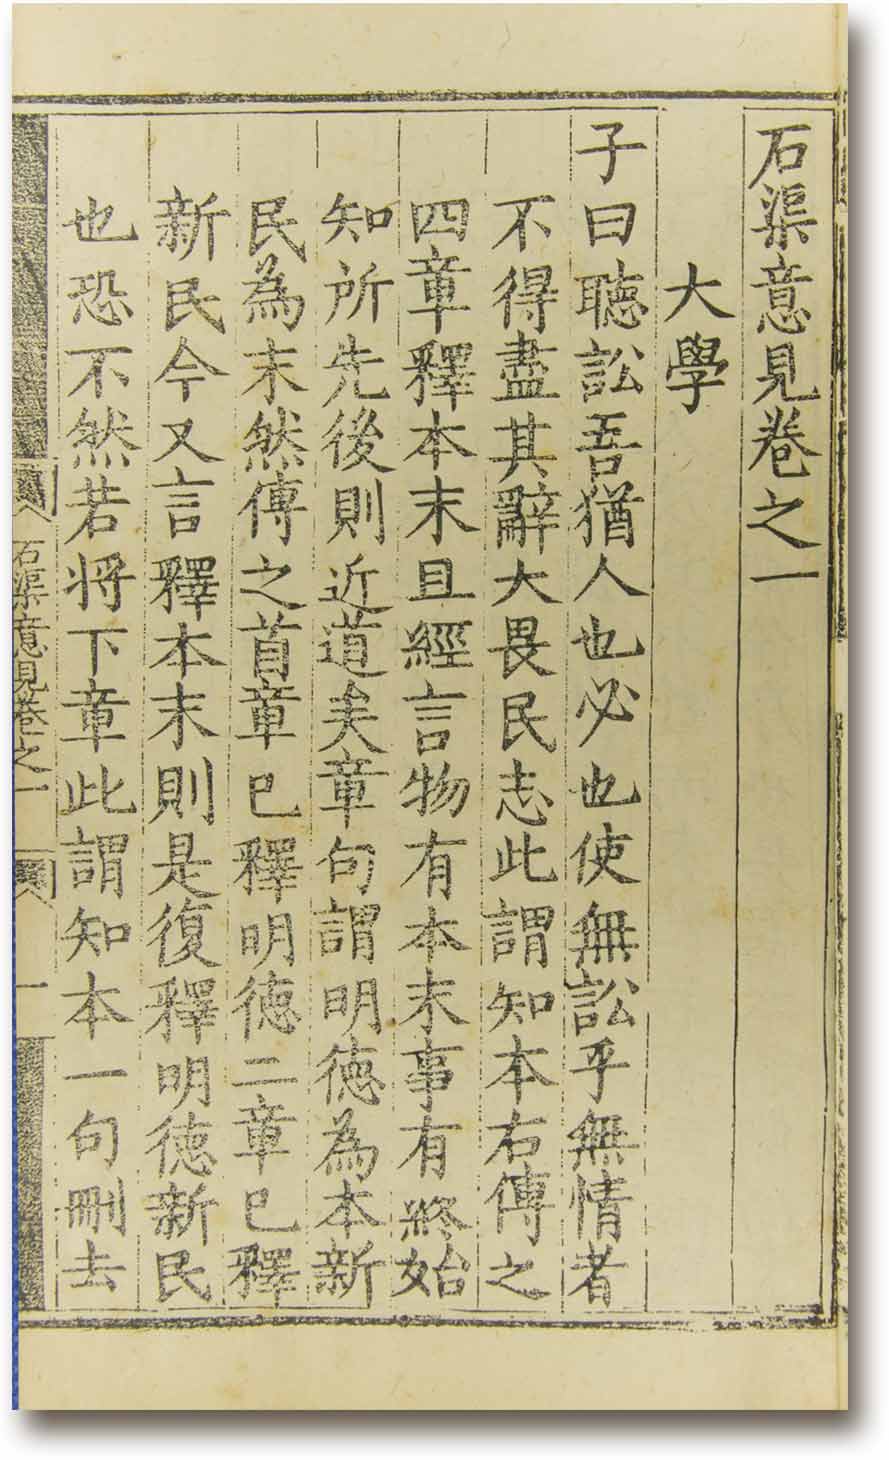 石渠意見卷之一
大學
子曰聴訟吾猶人也必也使無訟乎無情者
不得盡其辭大畏民志此謂知本右傳之
四章釋本末且經言物有本末事有終始
知所先後則近道矣章句謂明徳為本新
民為末然傳之首章已釋明徳二章已釋
新民今又言釋本末則是復釋明徳新民
也恐不然若将下章此謂知本一句刪去
石渠意見卷之一
一